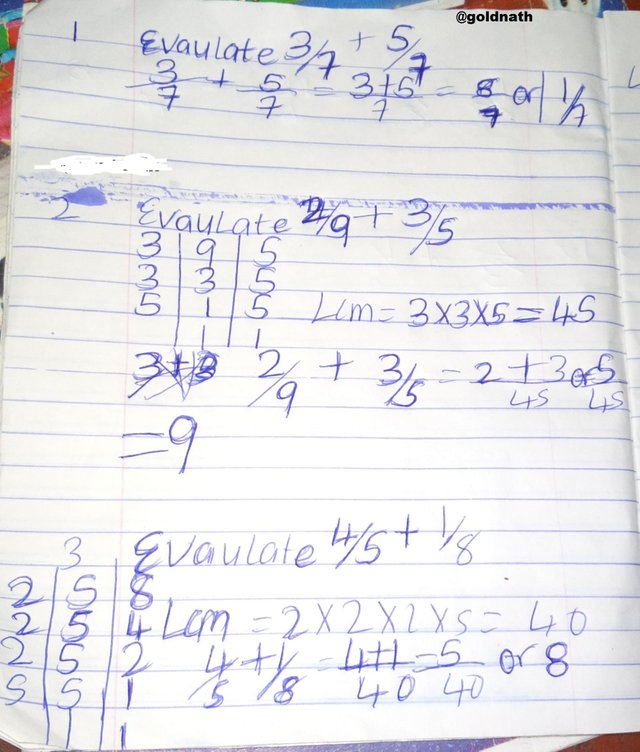 @goldnath
1 Evaulate 3/7 + 5/7
3/7 + 5/7 = 3+5/7 = 8/7 or 1 1/7
2 Evaulate 2/9 + 3/5
3 | 9 | 5
3 | 3 | 5
5 | 1 | 5 Lcm = 3×3×5 = 45
| 1 | 1
2/9 + 3/5 = 2+3/45 or 5/45
= 9
3 Evaulate 4/5 + 1/8
2 | 5 | 8
2 | 5 | 4 Lcm = 2×2×2×5 = 40
2 | 5 | 2 4/5 + 1/8 = 4+1/40 = 5/40 or 8
5 | 5 | 1
| 1 | 1